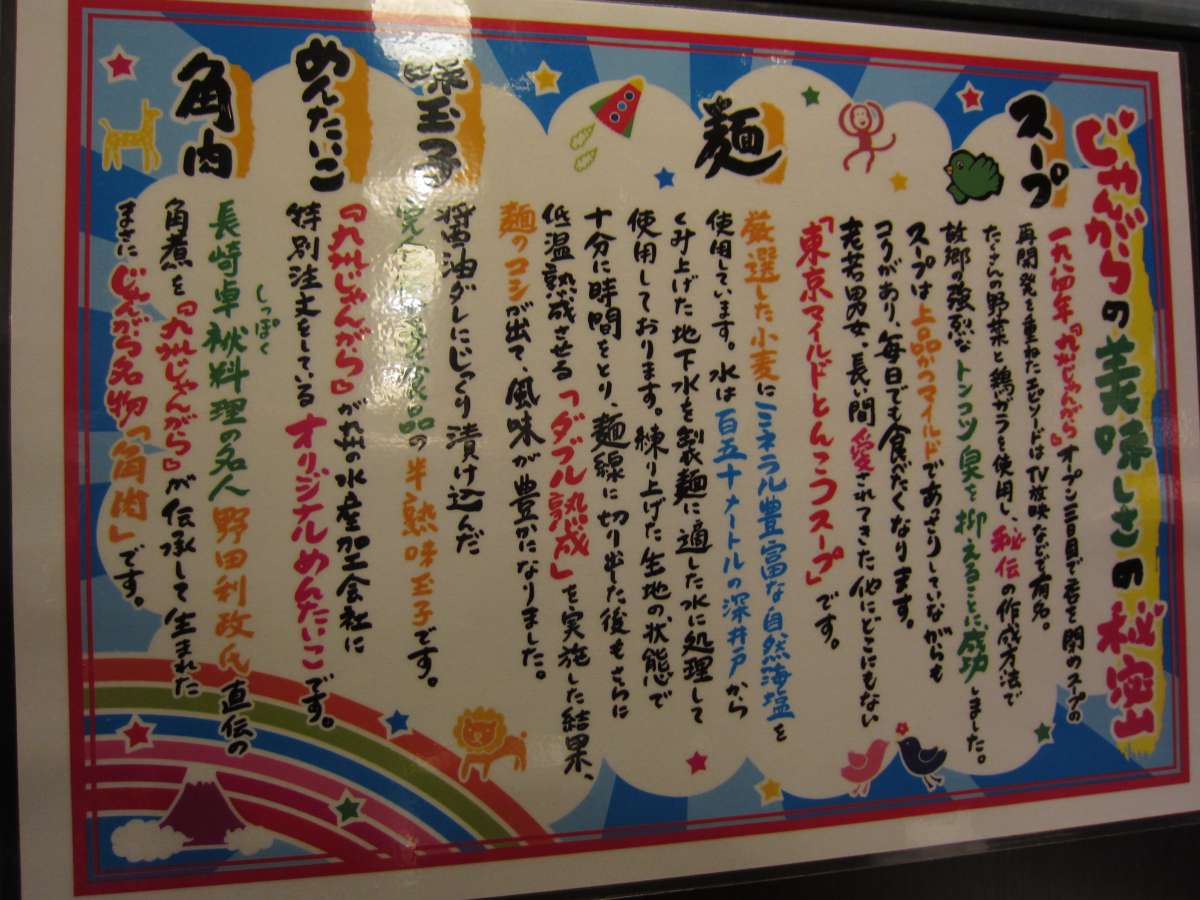 じゃんがらの美味しさの秘密
スープ
一九八四年『九州じゃんがら』オープン三日目で店を閉めスープの
再開発を重ねたエピソードはTV放映などで有名。
たくさんの野菜と鶏ガラを使用し、秘伝の作成方法で
故郷の強烈なトンコツ臭を抑えることに成功しました。
スープは上品かつマイルドであっさりしていながらも
コクがあり、毎日でも食べたくなります。
老若男女、長い間愛されてきた他にどこにもない
「東京マイルドとんこつスープ」です。
麺
厳選した小麦にミネラル豊富な自然海塩を
使用しています。水は百五十メートルの深井戸から
くみ上げた地下水を製麺に適した水に処理して
使用しております。練り上げた生地の状態で
十分に時間をとり、麺線に切り出した後もさらに
低温熟成させる「ダブル熟成」を実施した結果、
麺のコシが出て、風味が豊かになりました。
味玉子
醤油ダレにじっくり漬け込んだ
完全栄養食品の半熟味玉子です。
めんたいこ
『九州じゃんがら』が九州の水産加工会社に
特別注文をしているオリジナルめんたいこです。
角肉
長崎卓袱料理の名人野田利政氏直伝の
しっぽく
角煮を『九州じゃんがら』が伝承して生まれた
まさにじゃんがら名物「角肉」です。